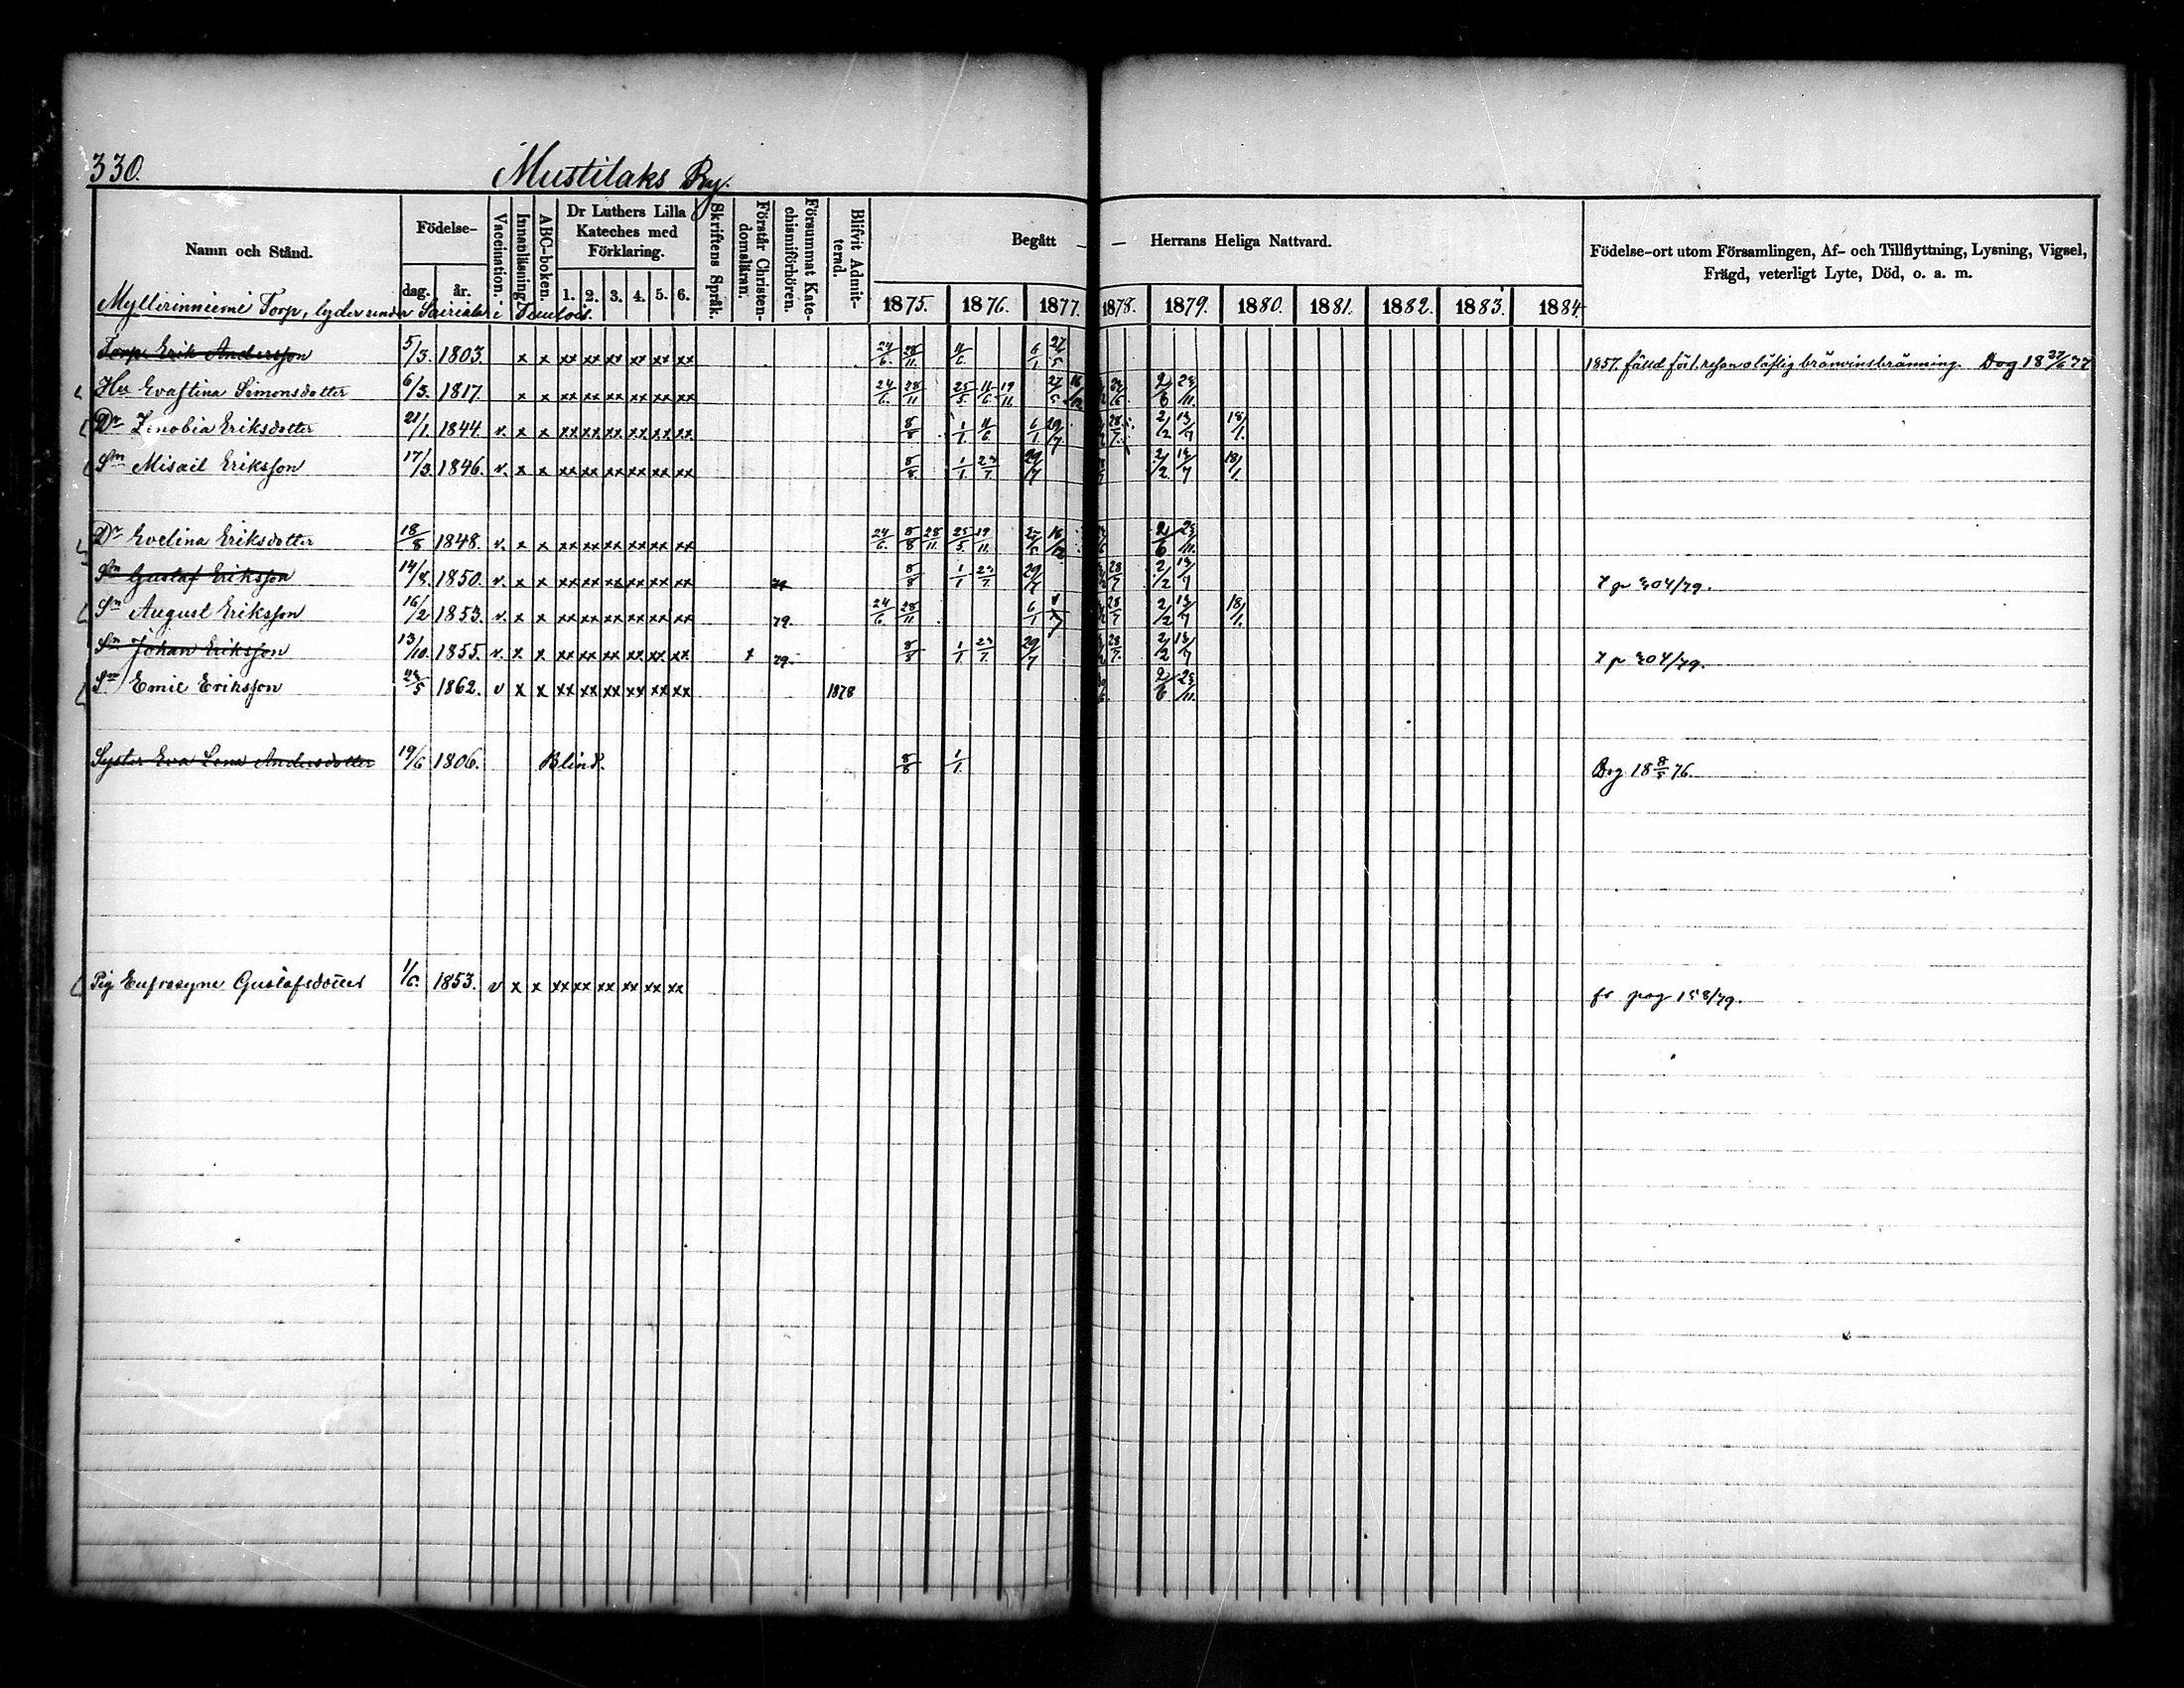 330.
Mustilaks By.
Namn och Stånd.
Födelse-
dag. år.
Vaccination.
Innanläsning.
ABC-boken.
Dr Luthers Lilla Kateches med Förklaring.
1. 2. 3. 4. 5. 6.
Skriftens Språk.
Förstår Christendomsläran.
Försummat Katechismiförhören.
Blifvit Admitterad.
Begått — — Herrans Heliga Nattvard.
1875. 1876. 1877. 1878. 1879. 1880. 1881. 1882. 1883. 1884
Födelse-ort utom Församlingen, Af- och Tillflyttning, Lysning, Vigsel, Frägd, veterligt Lyte, Död, o. a. m.
Myllerinniemi Torp, lyder under i Tuulois.
Torp. Erik Andersson 5/3. 1803. x x xx xx xx xx xx xx 24/6. 28/11. 11/6. 6/1 27/5 1857. fälld för 1. resan olaflig bränvinsbränning. Dog 18 27/6 77
Hu Evastina Simonsdotter 6/3. 1817. x x xx xx xx xx xx xx 24/6. 28/11 25/5. 11/6 19/11. 27/5 16/12 2/6 23/11.
Dr Zenobia Eriksdotter 21/1. 1844. v. x x xx xx xx xx xx xx 8/8 1/1. 11/6 6/1 29/7 28/7. 2/2 13/7 18/1.
Sn Misail Eriksson 17/3. 1846. v. x x xx xx xx xx xx xx 8/8. 1/1. 23/7. 29/7 2/2. 13/7 18/1.
Dr Evelina Eriksdotter 18/8 1848. v. x x xx xx xx xx xx xx 24/6. 8/8 28/11. 25/5. 19/11. 27/5 16/12 2/6 23/11.
Sn Gustaf Eriksson 14/8. 1850. v. x x xx xx xx xx xx xx 79 8/8 1/1 23/7. 29/7 28/7 2/2 13/7 T p 304/79.
Sn August Eriksson 16/2 1853. v. x x xx xx xx xx xx xx 79. 24/6 28/11 6/1 28/7 2/2 13/7 18/1.
Sn Johan Eriksson 13/10. 1855. v. x x xx xx xx xx xx xx x 79. 8/8 1/1 23/7. 29/7 28/7. 2/2 13/7 T p 304/79.
Sn Emil Eriksson 1862. v x x xx xx xx xx xx xx 1878 2/6 23/11.
Syster Eva Lena Andersdotter 19/6 1806. Blind. 8/8 1/1. Dog 18 8/5 76.
Pig Eufrosyne Gustafsdotter 1/6. 1853. v x x xx xx xx xx xx xx fr pag 158/79.